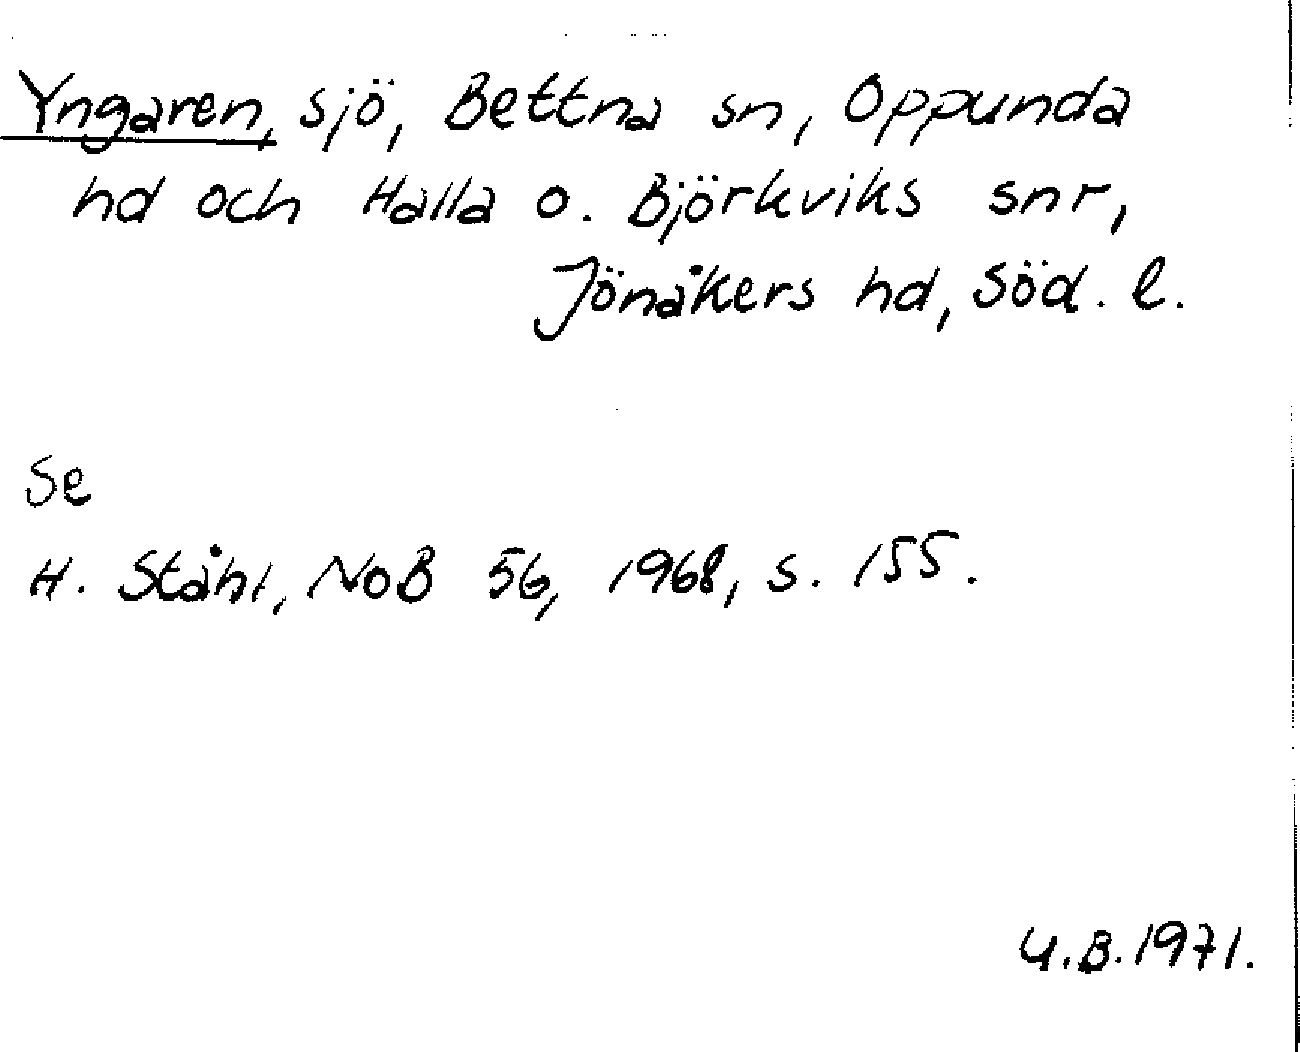 Yngaren, sjö, Bettna sn, Oppunda
hd och Halla o. Björkviks snr,
Jönåkers hd, Söd. l.
Se
H. Ståhl, NoB 56, 1968, s. 155.
U.B. 1971.